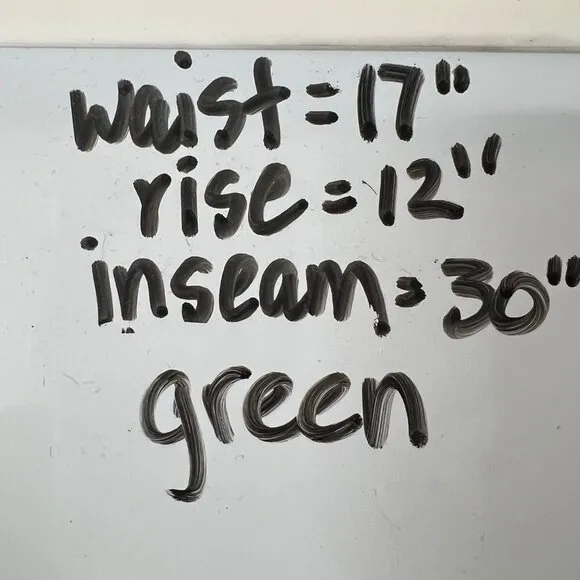 waist = 17"
rise = 12"
inseam = 30"
green